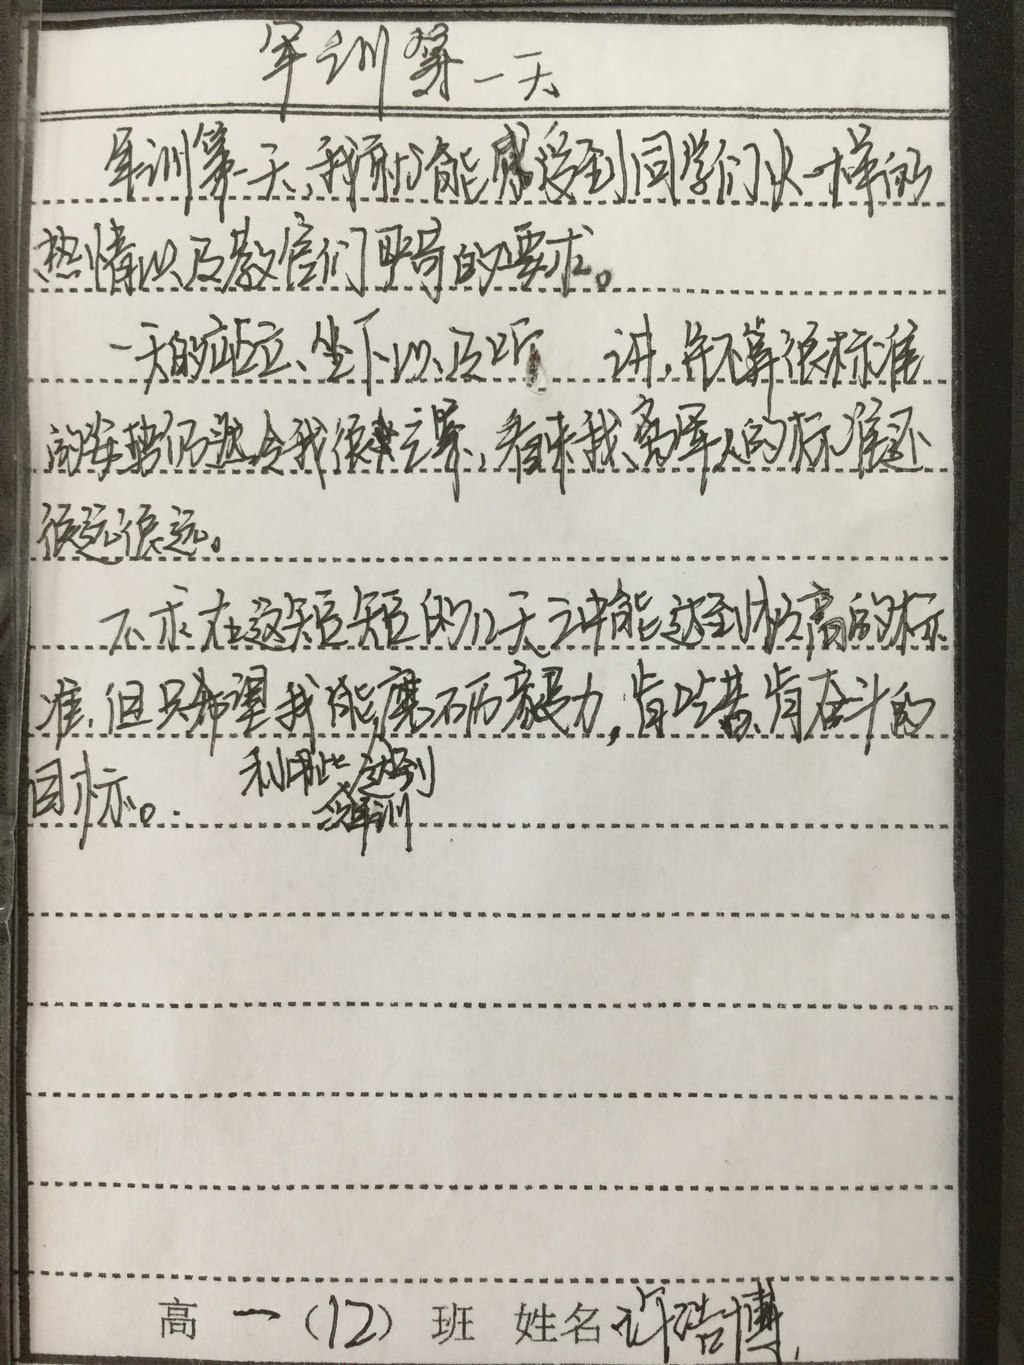 军训第一天
军训第一天,我就能感受到同学们火一样的
热情以及教官们严苛的要求。
一天的站立、坐下以及听 讲,并不算很标准
的姿势仍然令我很之累,看来我离军人的标准还
很远很远。
不求在这短短的几天之中能达到较高的标
准,但只希望我能磨砺毅力,肯吃苦、肯奋斗的
目标。 利用此 达到
次军训
高一(12)班 姓名 许浩博